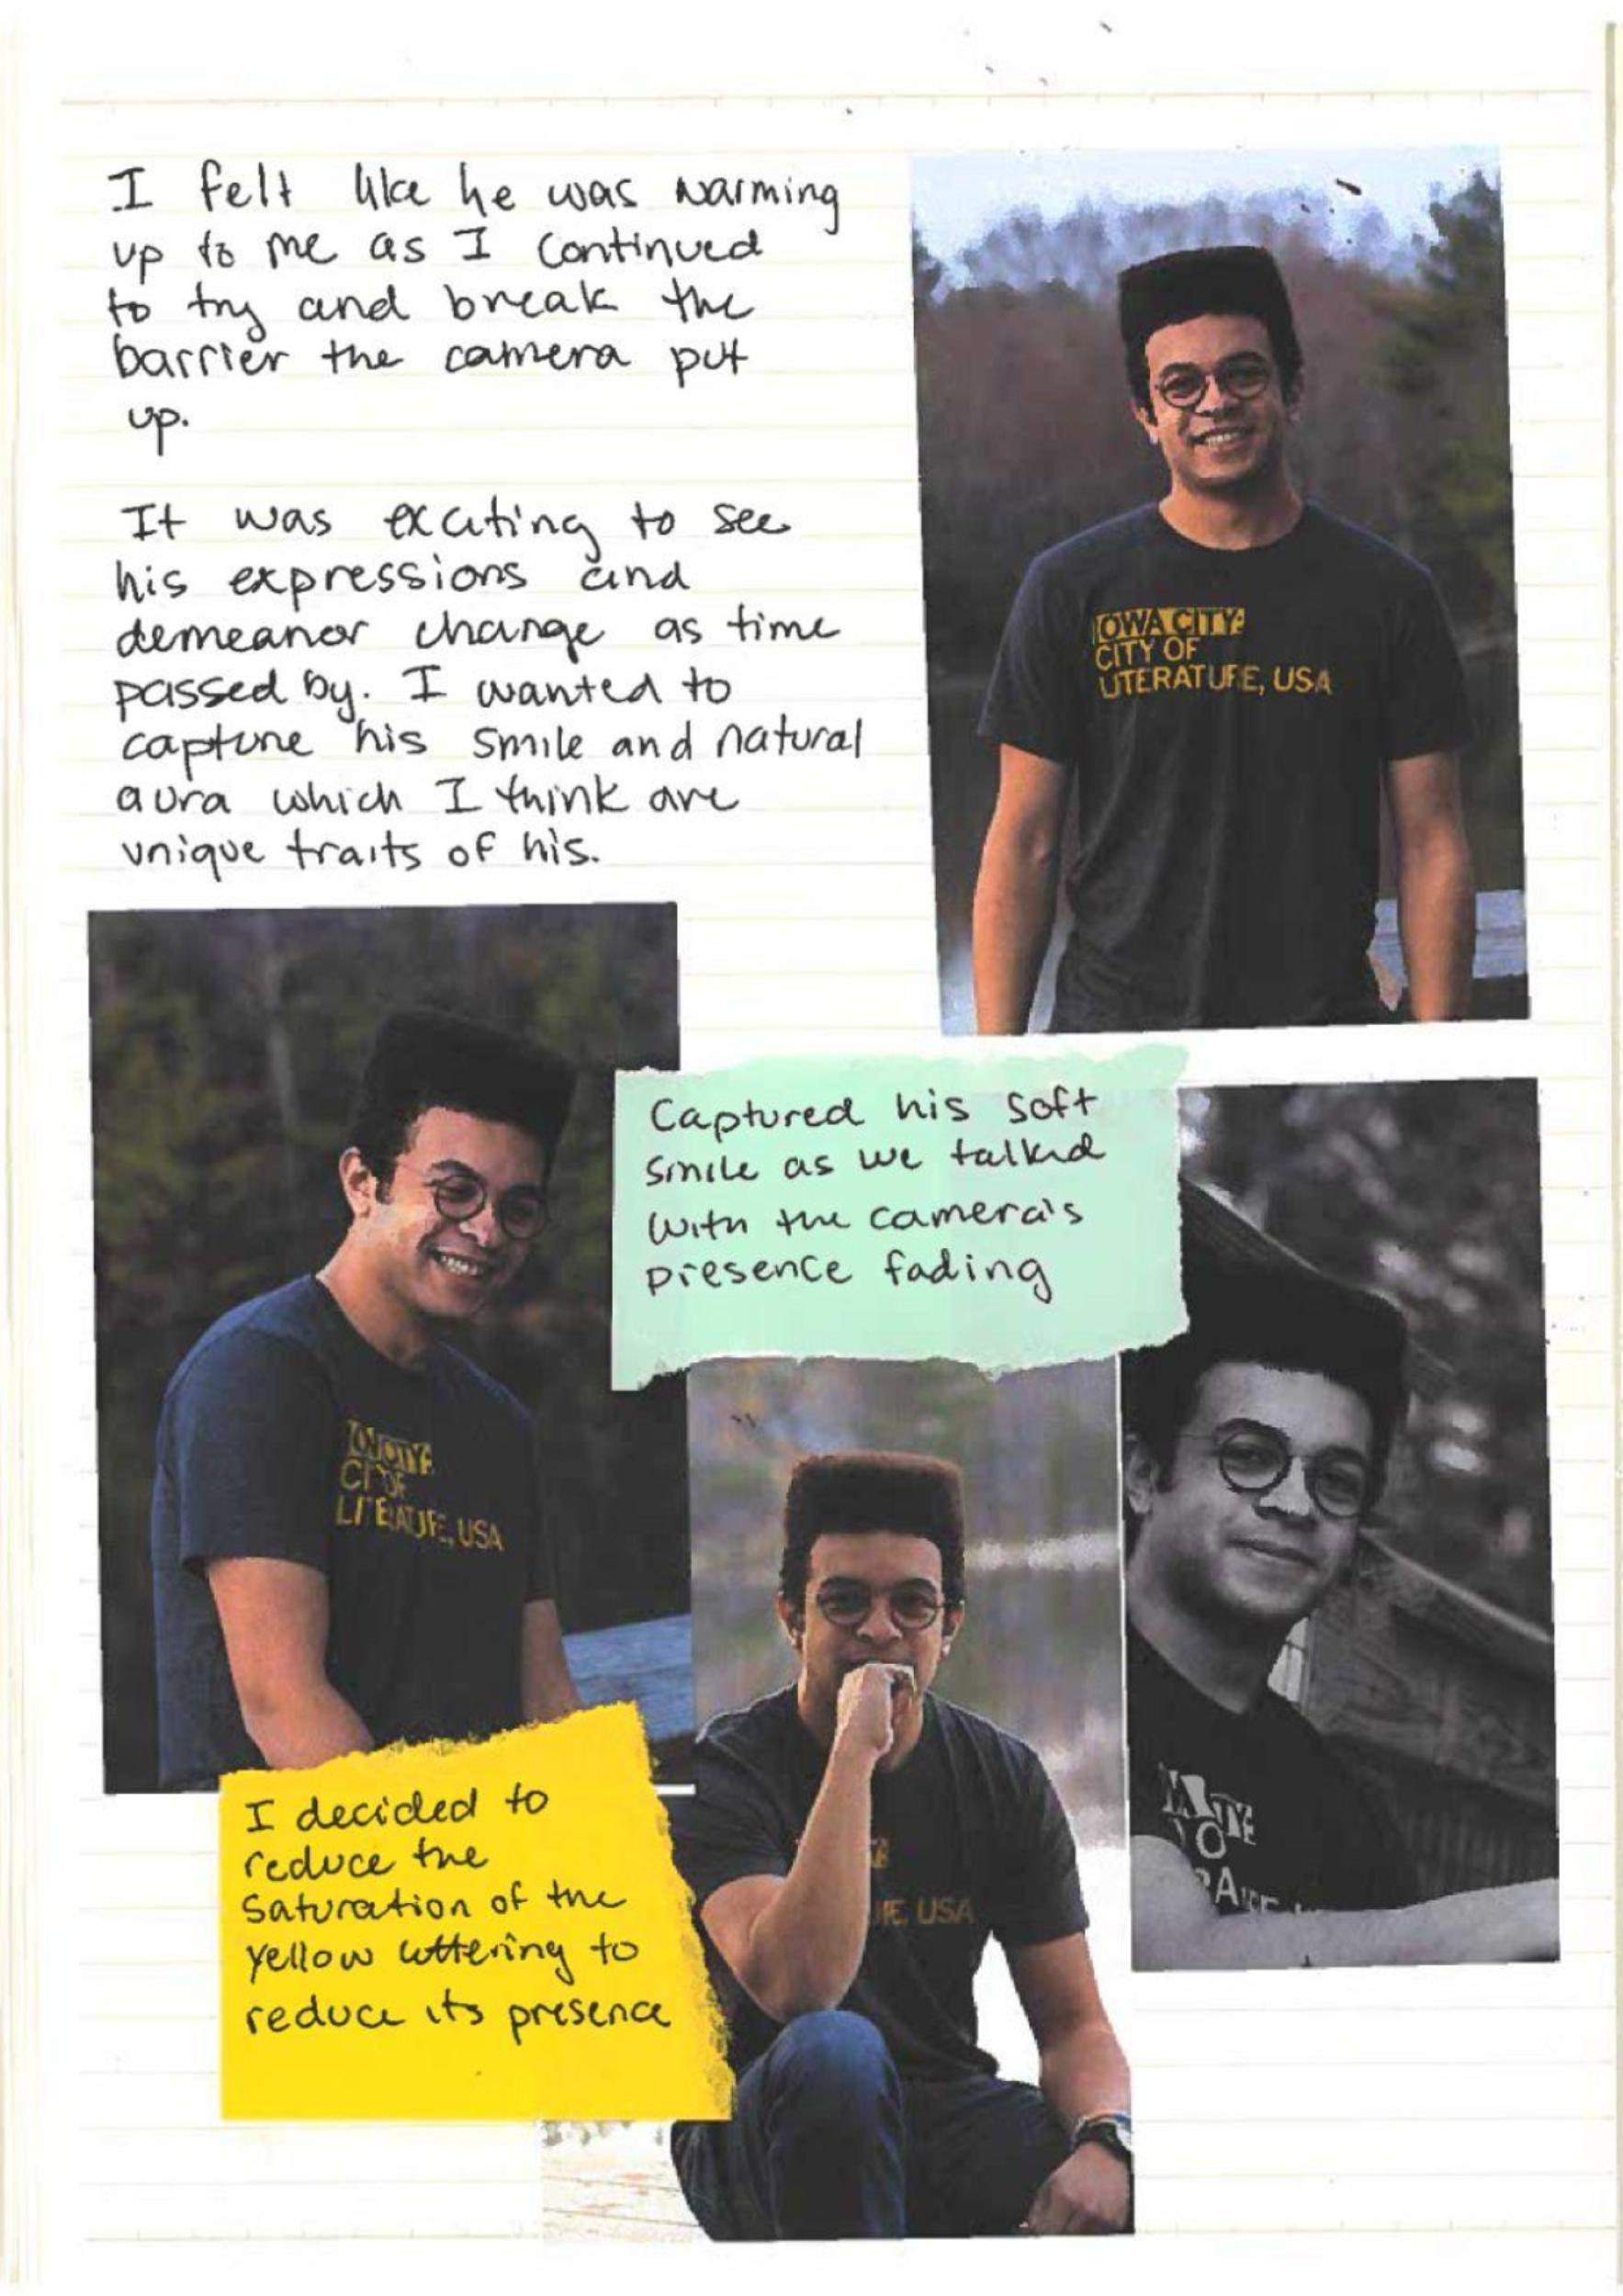 I felt like he was warming
up to me as I continued
to try and break the
barrier the camera put
up.
It was exciting to see
his expressions and
demeanor change as time
passed by. I wanted to
capture his smile and natural
aura which I think are
unique traits of his.
IOWA CITY:
CITY OF
LITERATURE, USA
Captured his soft
smile as we talked
with the camera's
presence fading
CITY OF
LITERATURE, USA
I decided to
reduce the
saturation of the
yellow lettering to
reduce its presence
USA